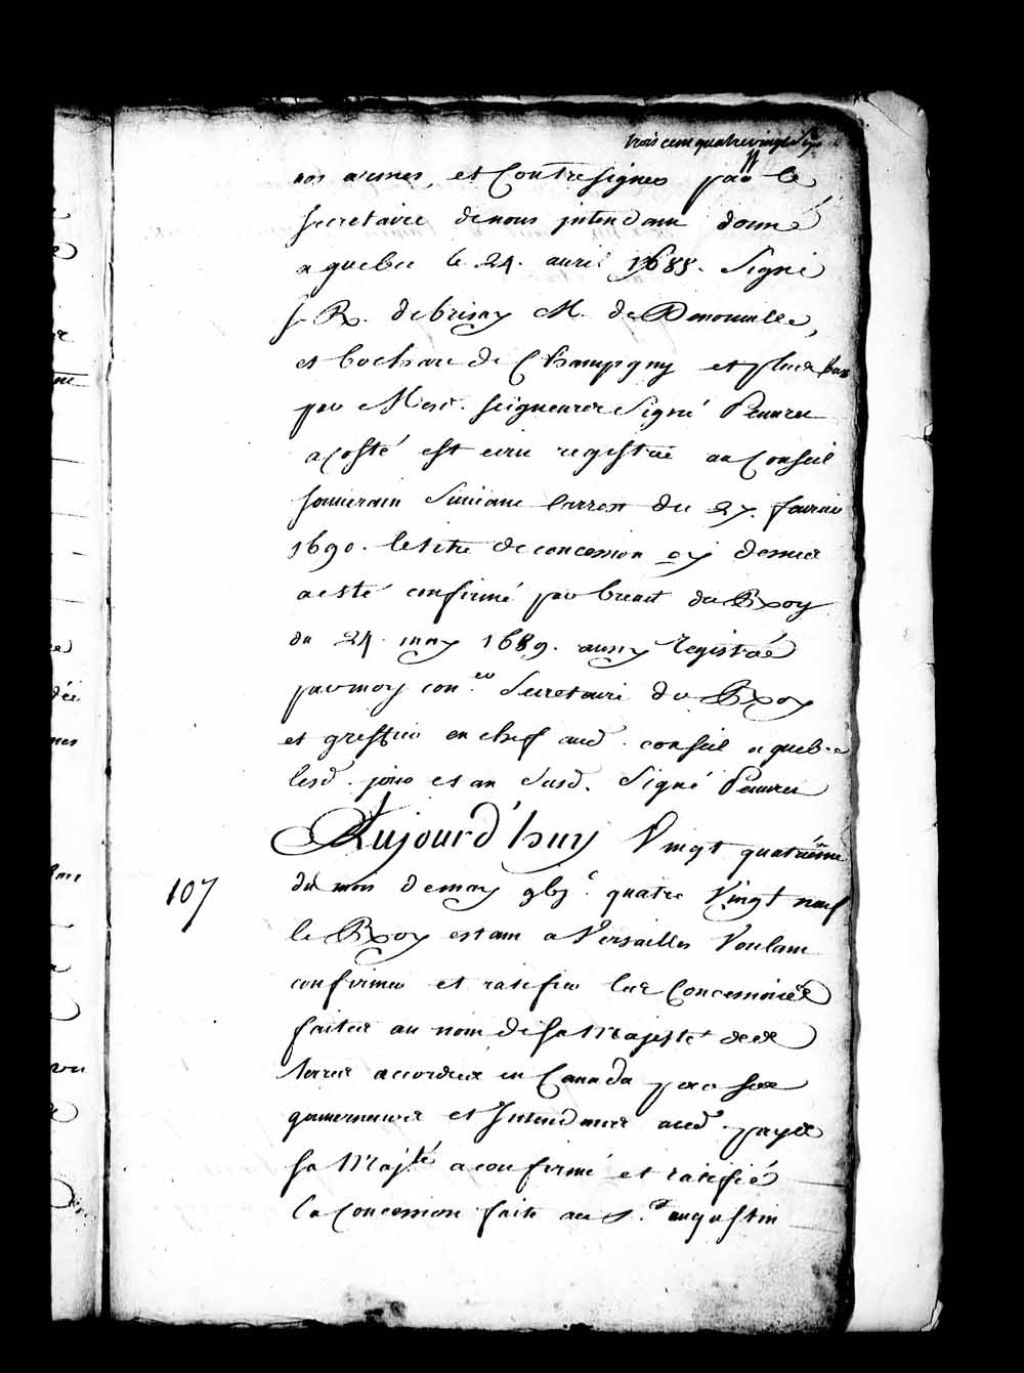 trois cent quatre vingt dix
nos armes, et Contresignes par le
secretaire de nous jntendant donné
a quebec le 24. auril 1688. Signé
J. R. de brisay M. de Denonuille,
et bochart de Champigny et plus bas
par Mesr. seigneurs Signé Peuuret
a costé est ecrit registré au Conseil
souuerain Suiuant l'arrest du 27. feurier
1690. le titre de concession cy dessus
a esté confirmé par breuet du Roy
du 24. may 1689. aussy registré
par moy con.er Secretaire du Roy
et greffier en chef aud. conseil a quebec
lesd. jour et an susd. Signé Peuuret
Aujourd'huy Vingt quatriéme
107
du mois de may gbjc. quatre Vingt neuf
le Roy estant a Versailles Voulant
confirmer et ratifier les Concessions
faites au nom de sa Majesté des
terres accordées en Canada par ses
gouuerneurs et Intendants aud. pays
sa Maj.té a confirmé et ratifié
la Concession faite au S.r augustin